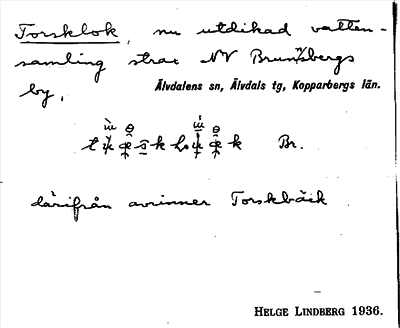 Torsklok, nu utdikad vatten-
samling strax NV Brunnsbergs
by.
Älvdalens sn, Älvdals tg, Kopparbergs län.
Br.
därifrån avrinner Torskbäck
HELGE LINDBERG 1936.